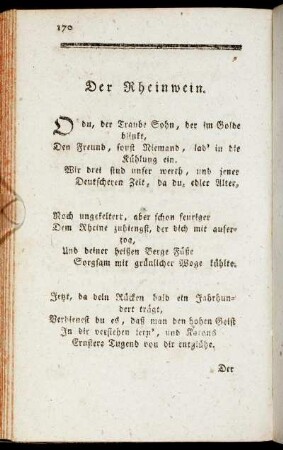 170
Der Rheinwein.
O du, der Traube Sohn, der im Golde
blinkt,
Den Freund, sonst Niemand, lad' in die
Kühlung ein.
Wir drei sind unser werth, und jener
Deutscheren Zeit, da du, edler Alter,
Noch ungekeltert, aber schon feuriger
Dem Rheine zuhiengst, der dich mit aufer-
zog,
Und deiner heißen Berge Füße
Sorgsam mit grünlicher Woge kühlte.
Jetzt, da dein Rücken bald ein Jahrhun-
dert trägt,
Verdienest du es, daß man den hohen Geist
In dir verstehen lern', und Katons
Ernstere Tugend von dir entglühe.
Der